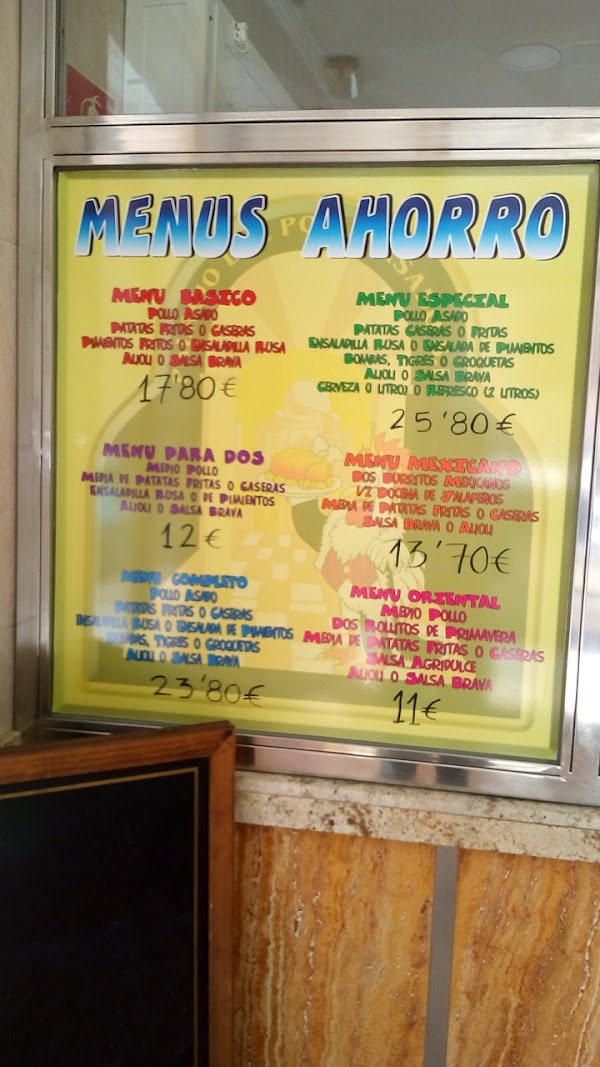 MENUS AHORRO
MENU BASICO
POLLO ASADO
PATATAS FRITAS O CASERAS
PIMIENTOS FRITOS O ENSALADILLA RUSA
ALIOLI O SALSA BRAVA
17'80€
MENU PARA DOS
MEDIO POLLO
MEDIA DE PATATAS FRITAS O CASERAS
ENSALADILLA ROSA O DE PIMIENTOS
ALIOLI O SALSA BRAVA
12€
MENU COMPLETO
POLLO ASADO
PATATAS FRITAS O CASERAS
ENSALADILLA RUSA O ENSALADA DE PIMIENTOS
BOMBAS, TIGRES O CROQUETAS
ALIOLI O SALSA BRAVA
23'80€
MENU ESPECIAL
POLLO ASADO
PATATAS CASERAS O FRITAS
ENSALADILLA RUSA O ENSALADA DE PIMIENTOS
BOMBAS, TIGRES O CROQUETAS
ALIOLI O SALSA BRAVA
CERVEZA (1 LITRO) O REFRESCO (2 LITROS)
25'80€
MENU MEXICANO
DOS BURRITOS MEXICANOS
1/2 DOCENA DE JALAPEÑOS
MEDIA DE PATATAS FRITAS O CASERAS
SALSA BRAVA O ALIOLI
13'70€
MENU ORIENTAL
MEDIO POLLO
DOS ROLLITOS DE PRIMAVERA
MEDIA DE PATATAS FRITAS O CASERAS
SALSA AGRIDULCE
ALIOLI O SALSA BRAVA
11€